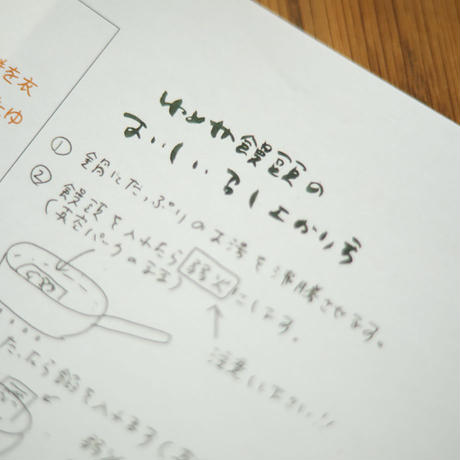 を衣
ゆ
ゆとか饅頭の
おいしいるし上がり方
① 鍋にたっぷりのお湯を沸騰させます。
② 饅頭を入れたら弱火にします。
(真空パックのまま)
注意して下さい!!
たら餡を入れます
弱火